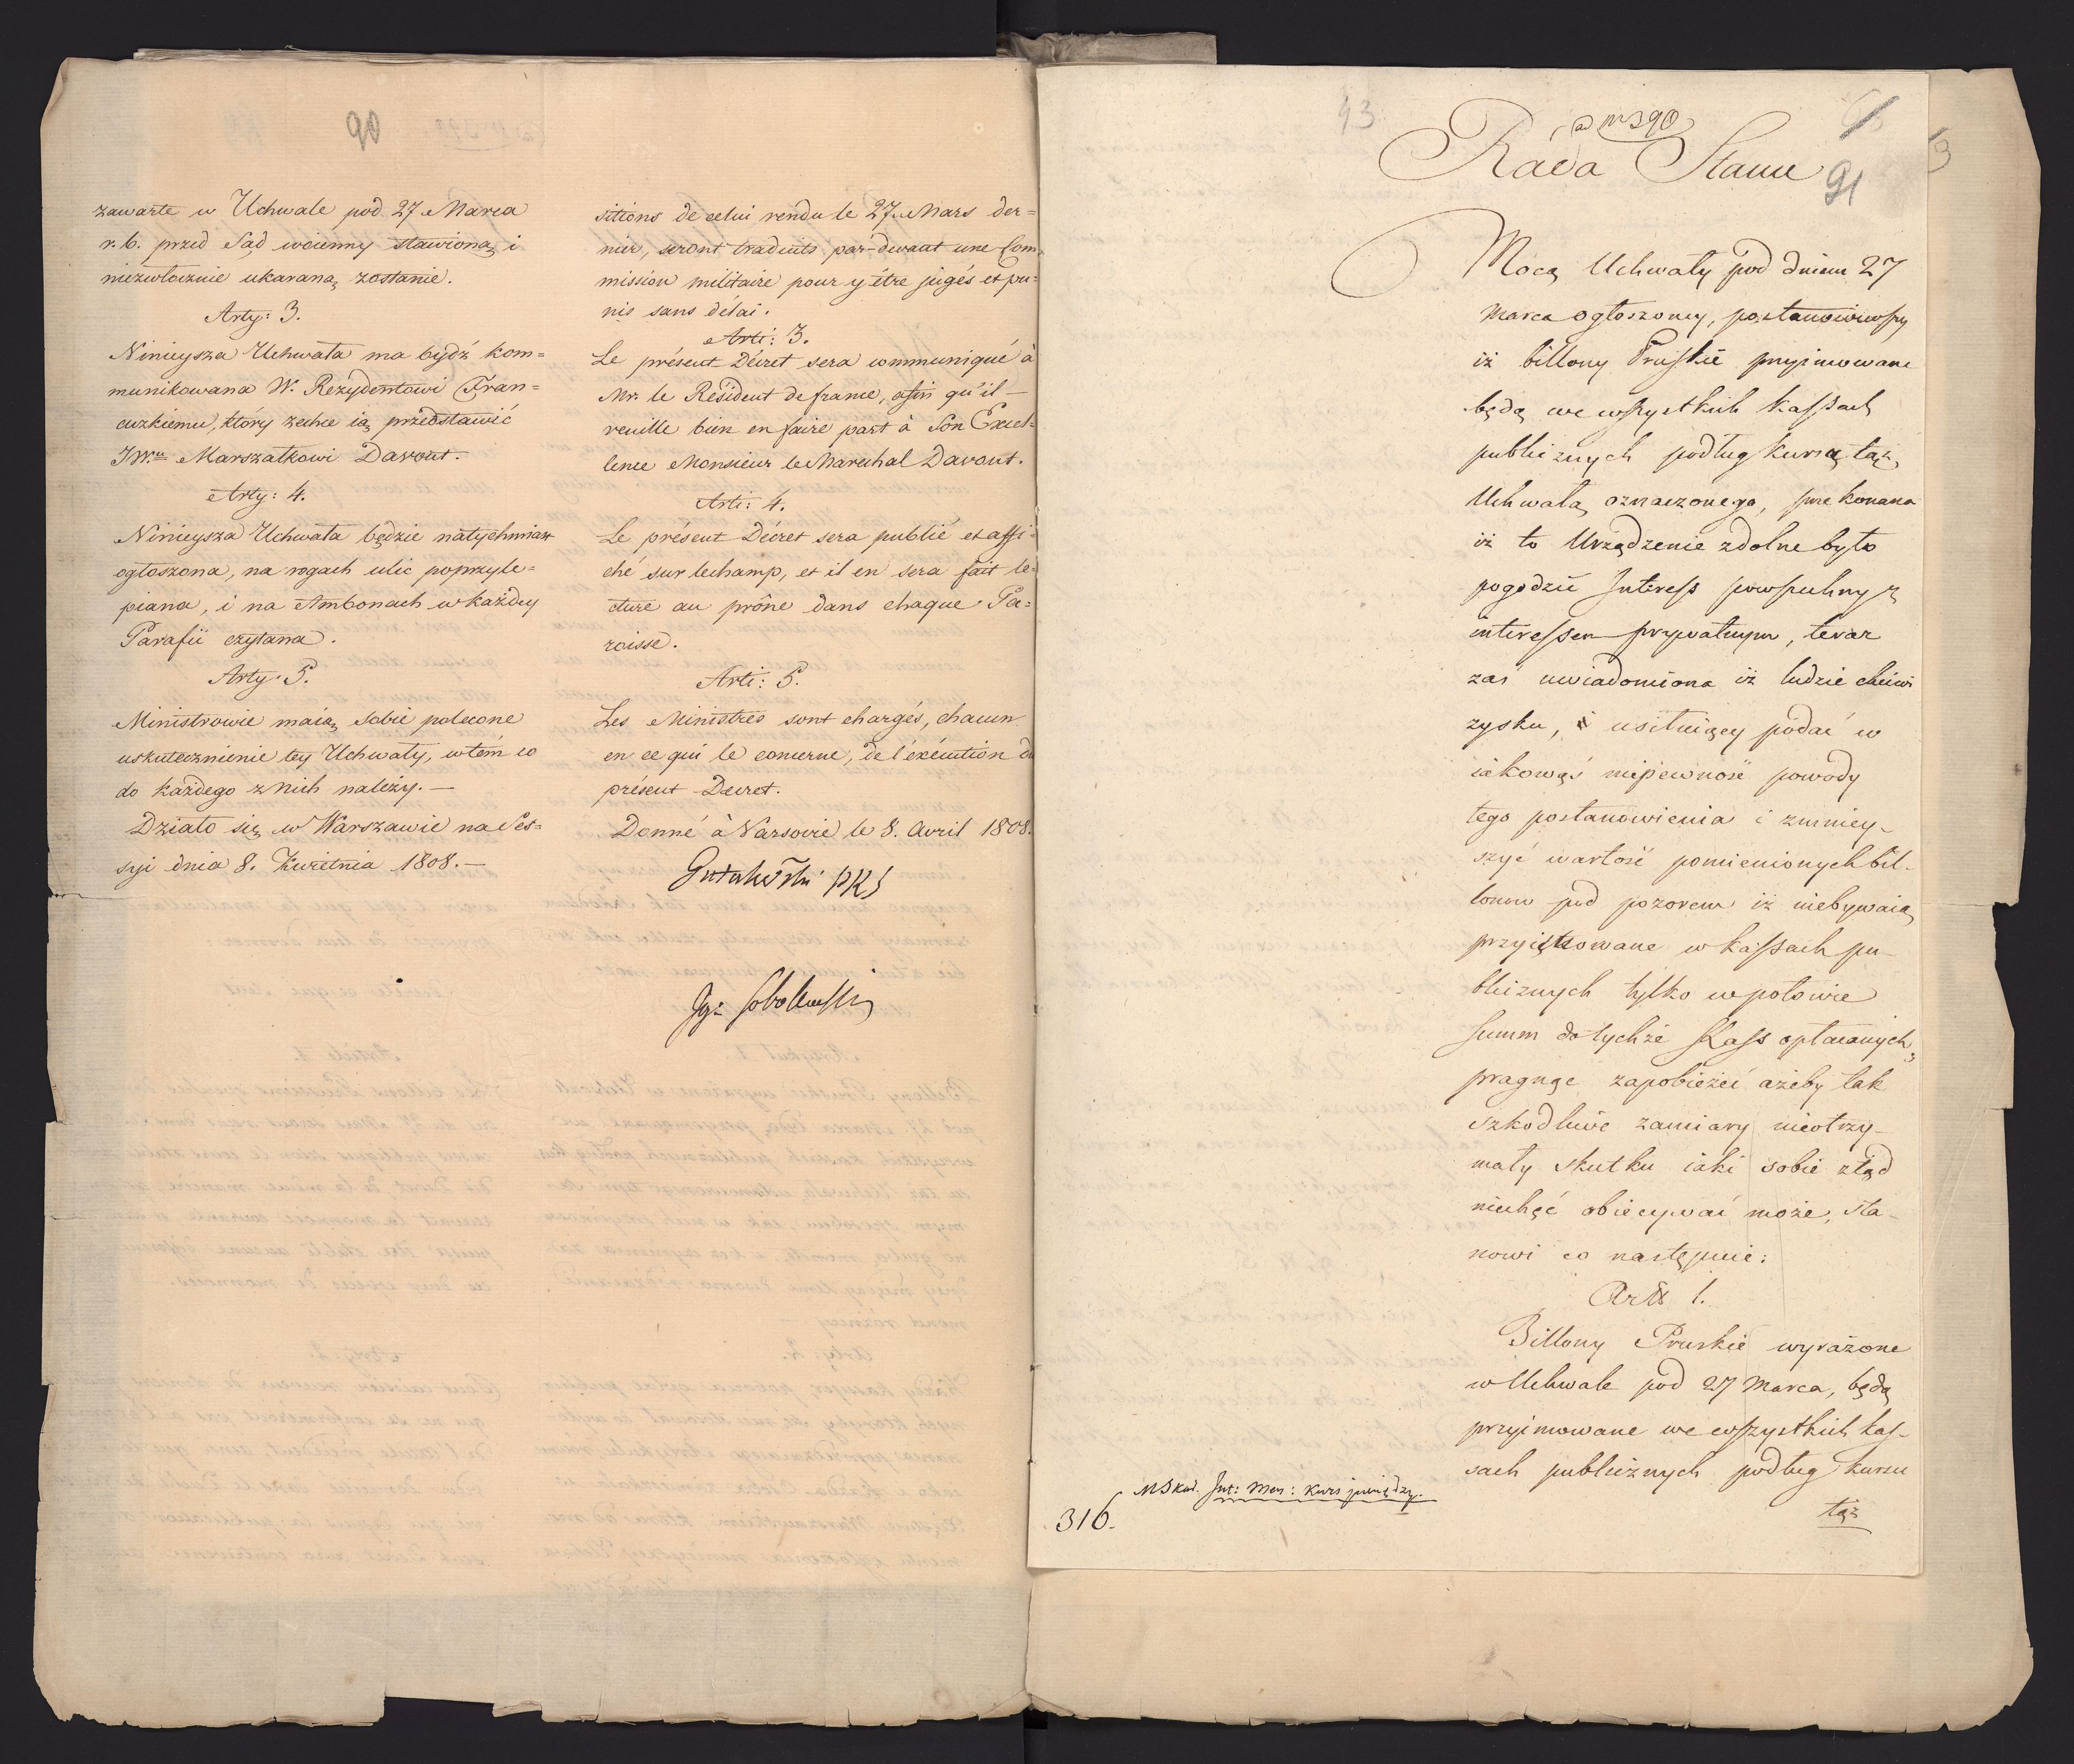 90
zawarte w Uchwale pod 27 Marca
r. b. przed Sąd woienny stawioną i
niezwłocznie ukaraną zostanie.
Arty: 3.
Ninieysza Uchwała ma bydź kom=
munikowana W. Rezydentowi Fran=
cuzkiemu, który zechce ią przedstawić
JW.u Marszałkowi Davout.
Arty: 4.
Ninieysza Uchwała będzie natychmiast
ogłoszona, na rogach ulic poprzyle=
piana, i na Ambonach w każdey
Parafii czytana.
Arty. 5.
Ministrowie maią sobie polecone
uskutecznienie tey Uchwały, w tém co
do każdego z nich należy. —
Działo się w Warszawie na Ses=
syi dnia 8. Kwietnia 1808. —
sitions de celui rendu le 27 Mars der=
nier, seront traduits par-devant une Com
mission militaire pour y être jugés et pu=
nis sans délai.
Arti: 3.
Le présent Décret sera communiqué à
Mr. le Résident de france, afin qu'il —
veuille bien en faire part à Son Excel=
lence Monsieur le Marechal Davout.
Arti: 4.
Le présent Décret sera publié et affi=
ché sur lechamp, et il en sera fait le=
cture au prône dans chaque Pa=
roisse.
Arti: 5.
Les Ministres sont chargés, chacun
en ce qui le concerne, de l'exécution du
présent Decret.
Donné à Varsovie le 8. Avril 1808.
Gutakowski PRS
Ig: Sobolewski
43
ad nr 390
Rada Stanu
91
Mocą Uchwały pod dniem 27
Marca ogłoszoney, postanowiwszy
iż billony Pruskie przyimowane
będą we wszystkich kassach
publicznych podług kursu tąż
Uchwałą oznaczonego, przekonana
iż to Urządzenie zdolne było
pogodzić Interess powszechny z
interessem prywatnym, teraz
zaś uwiadomiona iż ludzie chciwi
zysku, usiłuiący podać w
iakowąś niepewność powody
tego postanowienia i zmniey-
szyć wartość pomienionych bil-
lonow pod pozorem iż niebywaią
przyimowane w kassach pu-
blicznych tylko w połowie
summ do tychże Kass opłacanych,
pragnąc zapobieżeć ażeby tak
szkodliwe zamiary nieotrzy-
mały skutku iaki sobie ztąd
niechęć obiecywać może, sta-
nowi co następuie:
Art 1.
Billony Pruskie wyrażone
w Uchwale pod 27 Marca, będą
przyimowane we wszystkich kas-
sach publicznych podług kursu
tąż
Int: Men: Kurs pieniędzy.
316.